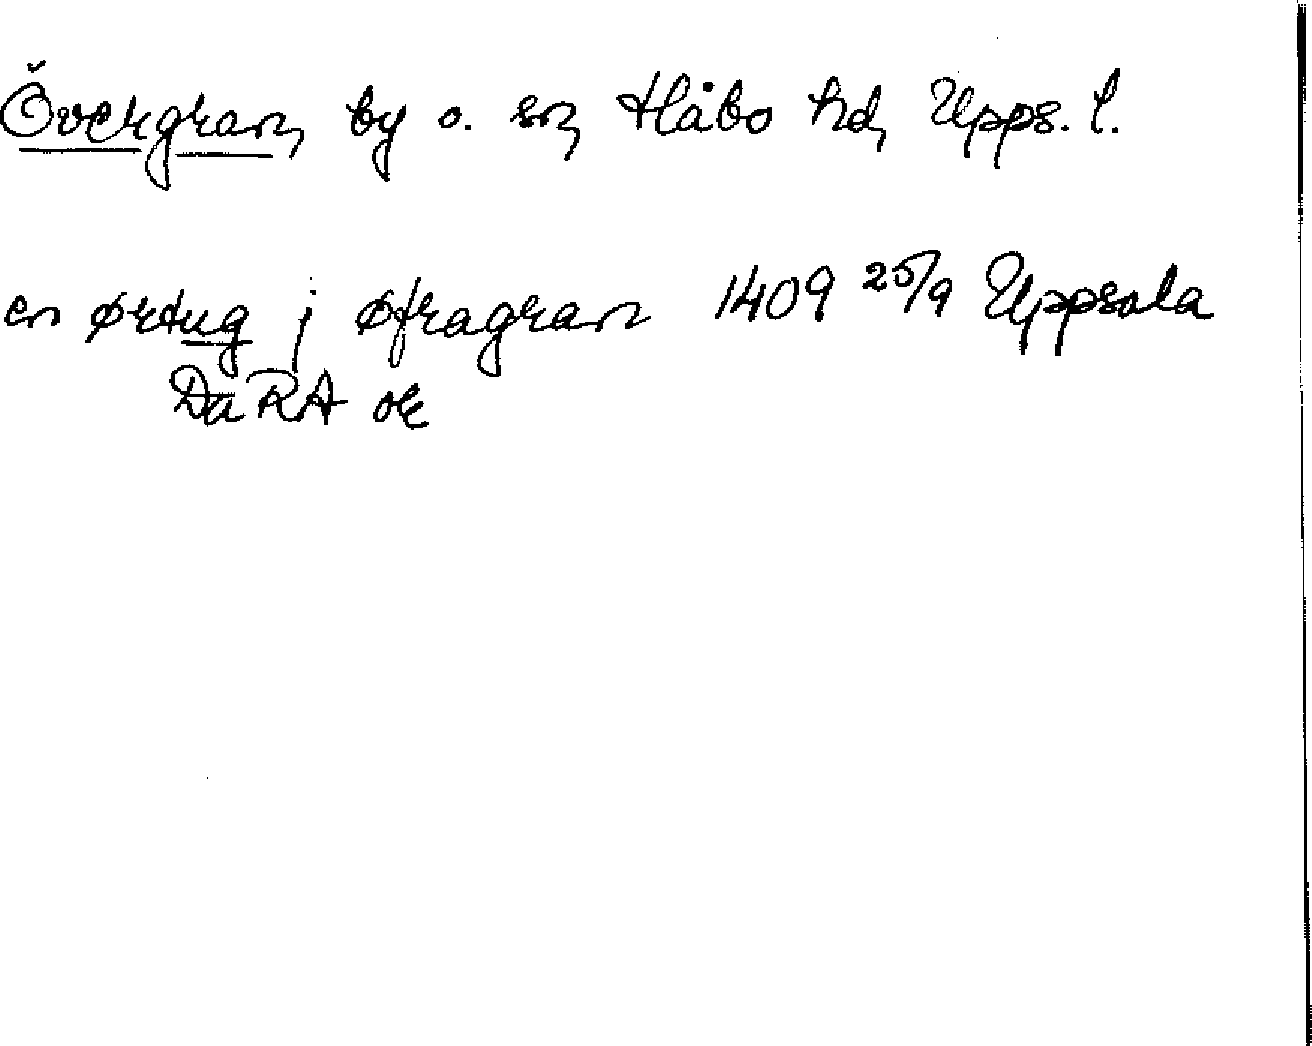 Övergran, by o. sn, Håbo hd, Upps. l.
en ørtug j øfragran 1409 25/9 Uppsala
Da RA or